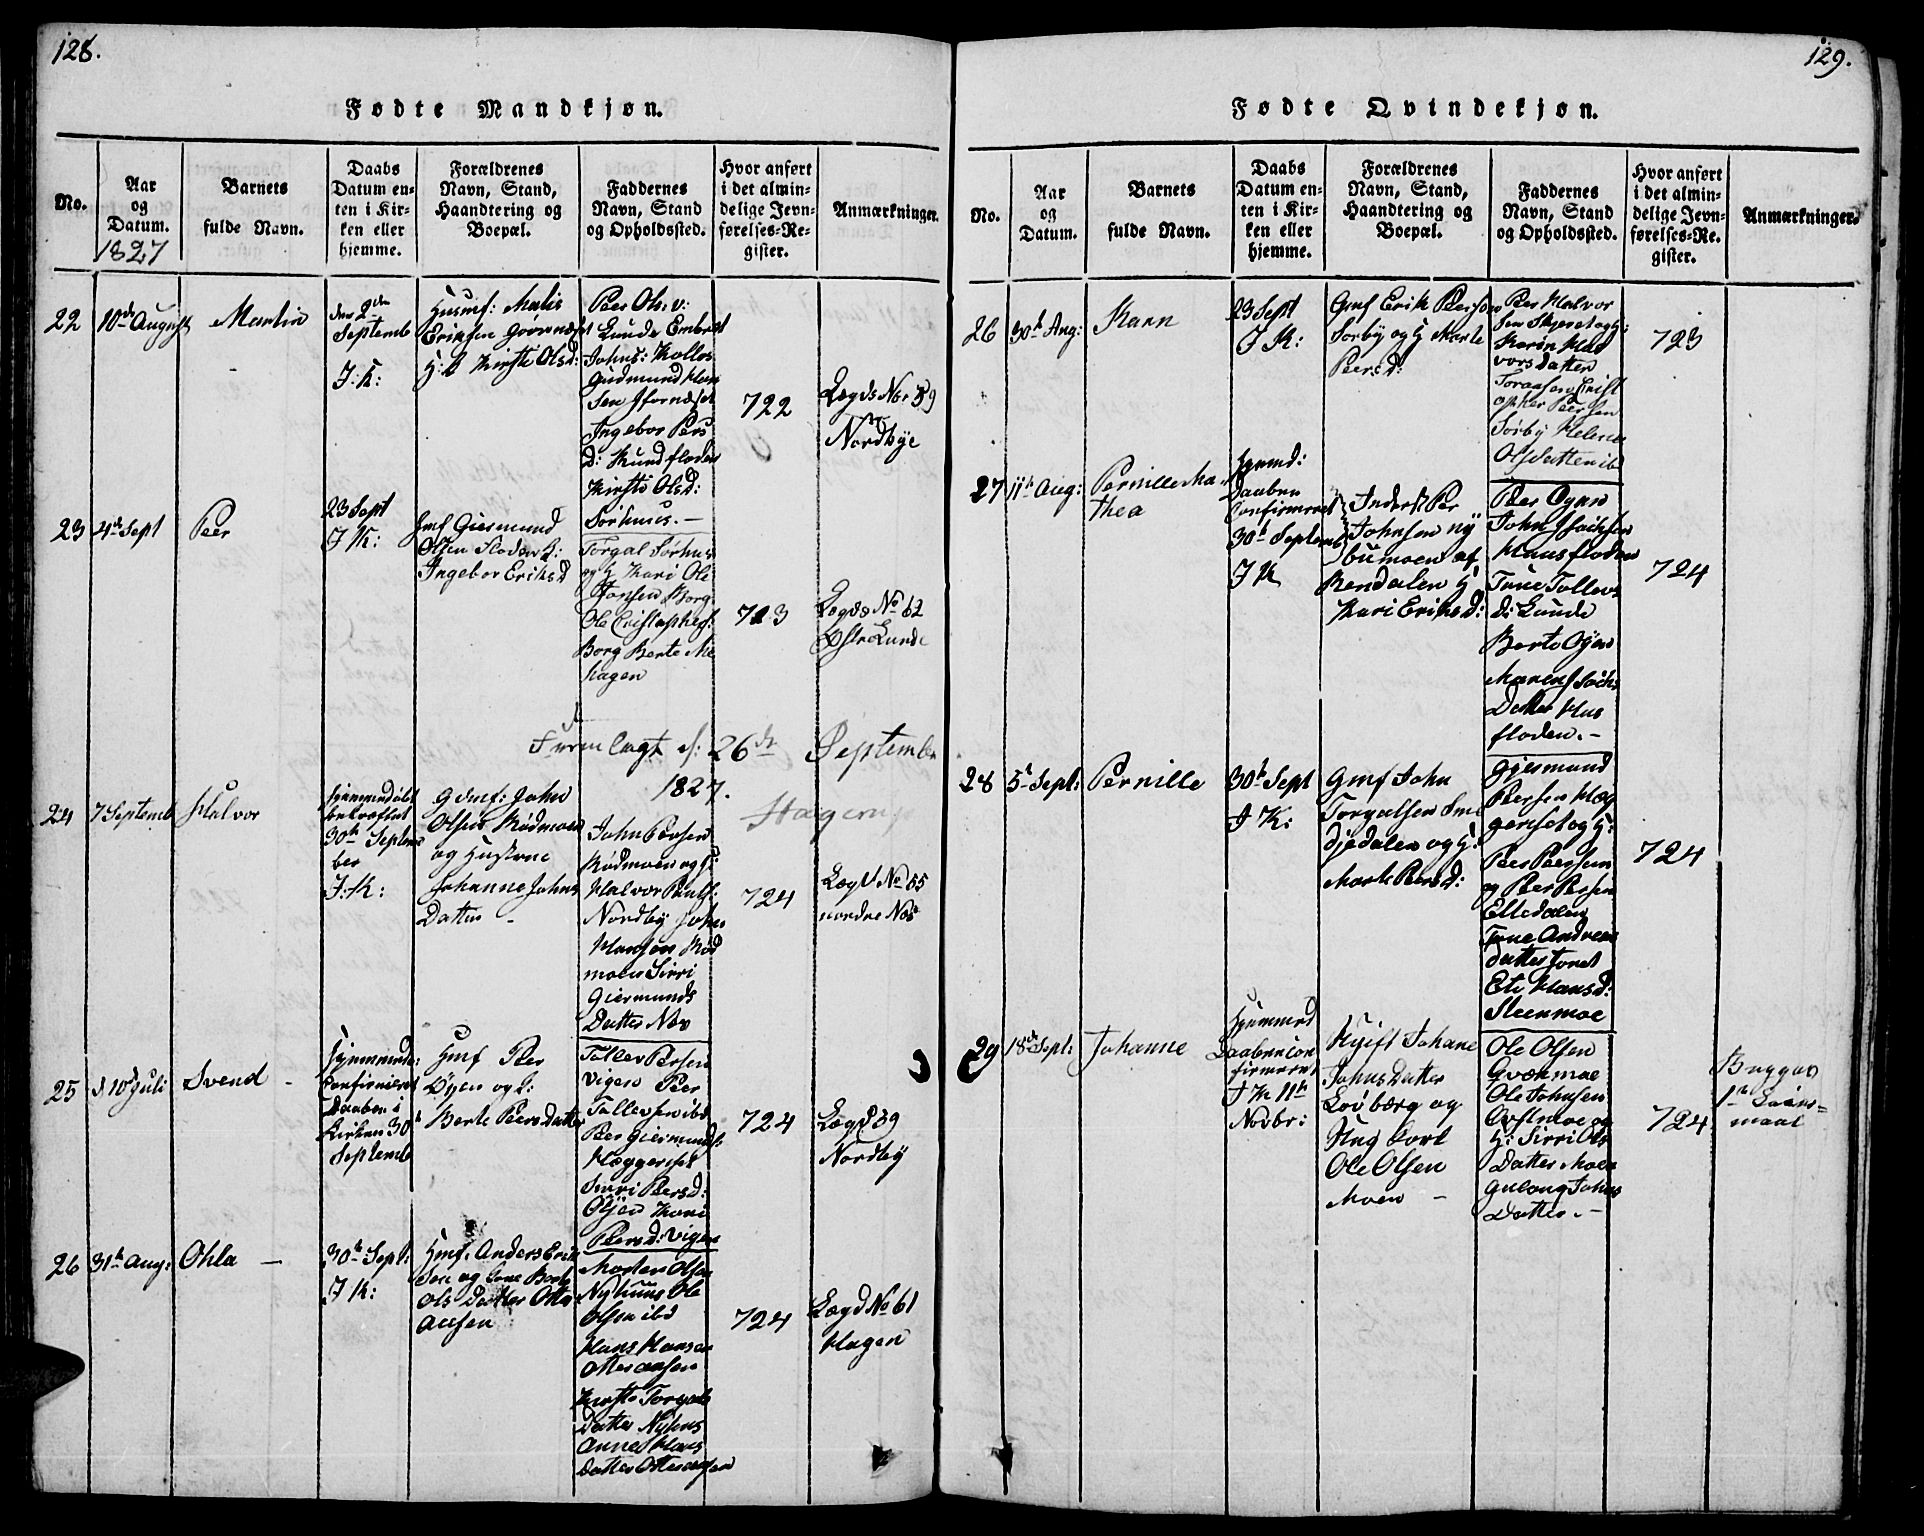 128.
Fødte Mandkjøn.
No.
Aar
og
Datum.
1827
Barnets
fulde Navn.
Daabs
Datum en-
ten i Kir-
ken eller
hjemme.
Forældrenes
Navn, Stand,
Haandtering og
Boepæl.
Faddernes
Navn, Stand
og Opholdssted.
Hvor anført
i det almin-
delige Jevn-
førelses-Re-
gister.
Anmærkninger.
22
10de August
Martin
den 2den
Septemb
J: K:
Husmf: Mats
Eriksen
H: K Kirsti Olsd:
Peer Ols: v:
Lunde Embret
Johns: Kollos
Gudmund Han
sen
Ingebor Pers
d: Kundfloden
Kirsti Olsd:
Sørhuus. -
722
Lægds No 59
Nordbye
23
4de Sept
Peer
23 Sept
J K:
Gmf Giermund
Olsen Floden H:
Ingebor Eriksd
Torgal Sørhus
og H Kari Ole
Hansen Borg
Ole Cristophers:
Borg Berte Me
hagen
723
Lægds No 62
Østre Lunde
Fremlagt d: 26de September
1827.
24
7 Septemb
Halvor
Hjemmedøbt
bekræftet
30te Septem
ber
J: K:
Gdmf: John
Olsen Rødmoen
og Hustrue
Johanne Johns
Datter -
John Persen
Rødmoen og H:
Halvor Pauls:
Nordby John
Hansen Rød
moen Sirri
Giermunds
Datter Nos
724
Lægd No 55
nordre Nos
25
d 10de Juli
Svend -
Hjemmedø:
Confirmeret
Daaben i
Kirken 30t
Septemb
Hmf Peer
Øyen og H:
Berte Peers Datter
Tollev Persen
Vigen Peer
Tollevsen ibd
Peer Giermunds:
Hæggerset
Sirri Peersd:
Øyen Kari
Peersd: Vigen
724
Lægd 39
Nordby
26
31te Aug:
Ohla -
30te Sept:
J K:
Hmf: Anders Erik
sen og Kone Berte
Ols Datter Otter
aasen
Morten Olsen
Nyhuus Ole
Olsen ibd
Hans Hansen
Otteraasen
Kirsti Torgals
Datter Nyhus
Anne Hans
datter Otteraasen
724
Lægd No 61
Hagen
129.
Fødte Qvindekjøn.
No.
Aar
og
Datum.
Barnets
fulde Navn.
Daabs
Datum en-
ten i Kir-
ken eller
hjemme.
Forældrenes
Navn, Stand,
Haandtering og
Boepæl.
Faddernes
Navn, Stand
og Opholdssted.
Hvor anført
i det almin-
delige Jevn-
førelses-Re-
gister.
Anmærkninger.
26
30te Aug:
Karn
23 Sept
J K:
Gmf Erik Persen
Sørby og H Marte
Peersd:
Per Halvor
sen Skjeret og H:
Karin Hal
vors datter
Crist
opher Peersen
Sørby Helene
Olsdatter ibd
723
27
11te Aug:
Pernille Ma
thea
Hjemmd:
Daaben
Confirmeret
30te Septemb
J K
Inderst Per
Johnsen ny
bumoen af
Rendalen H
Kari Eriksd:
Peer Øyen
John
Huusfloden
Tone Tollevs
d: Lunde
Berte Øyen
Maren
Datter Hus
floden. -
724
28
5t Sept:
Pernille
30te Sept
J K:
Gmf John
Torgalsen Sme
djedalen og H:
Marte Persd:
Gjermund
Persen Hæg
gerset og H:
Peer Peersen
og Peer Persen
Elledalen
Tone Andreas
datter
Eli Hansd:
Steenmoe
724
29
18de Sept:
Johanne
Hjemmed
Daaben con
firmeret
J K 11te
Novbr:
Ugift Johane
Johns Datter
Lovbærg og
Ung Karl
Ole Olsen
Moen -
Ole Olsen
Gvækmoe
Ole Johnsen
og
H: Sirri Ols
Datter Moen
Gulaug Johns
Datter. -
724
Begges
1te Leiers-
maal